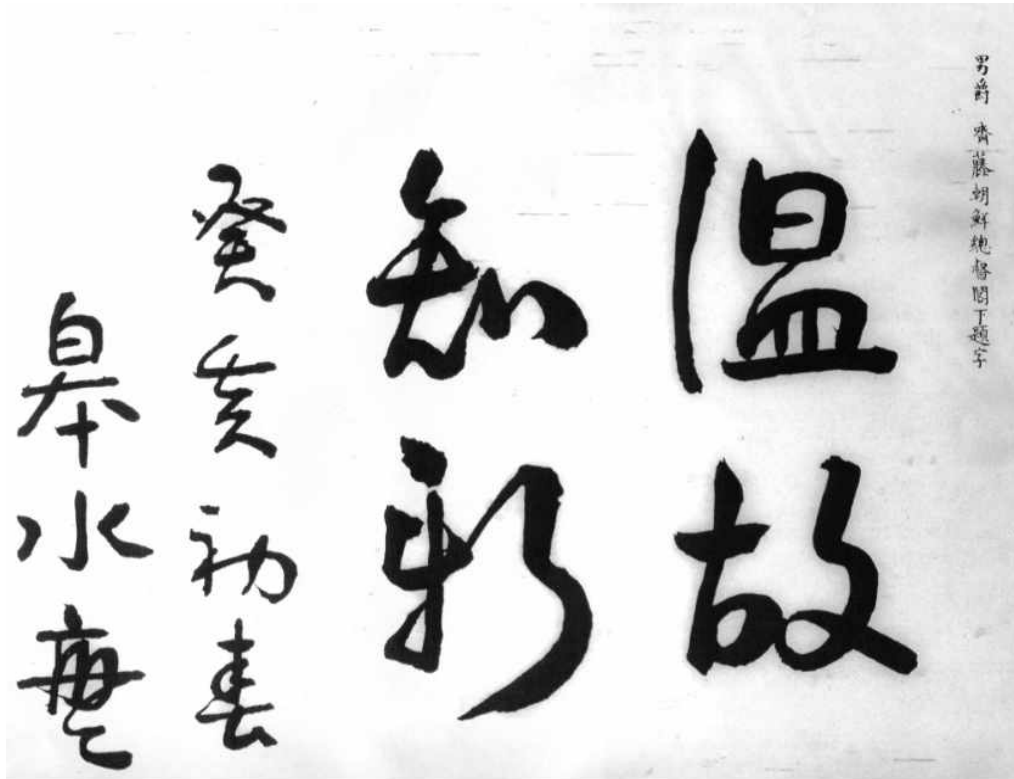 男爵 齊藤朝鮮總督閣下題字
温故
知新
癸亥初春
皋水